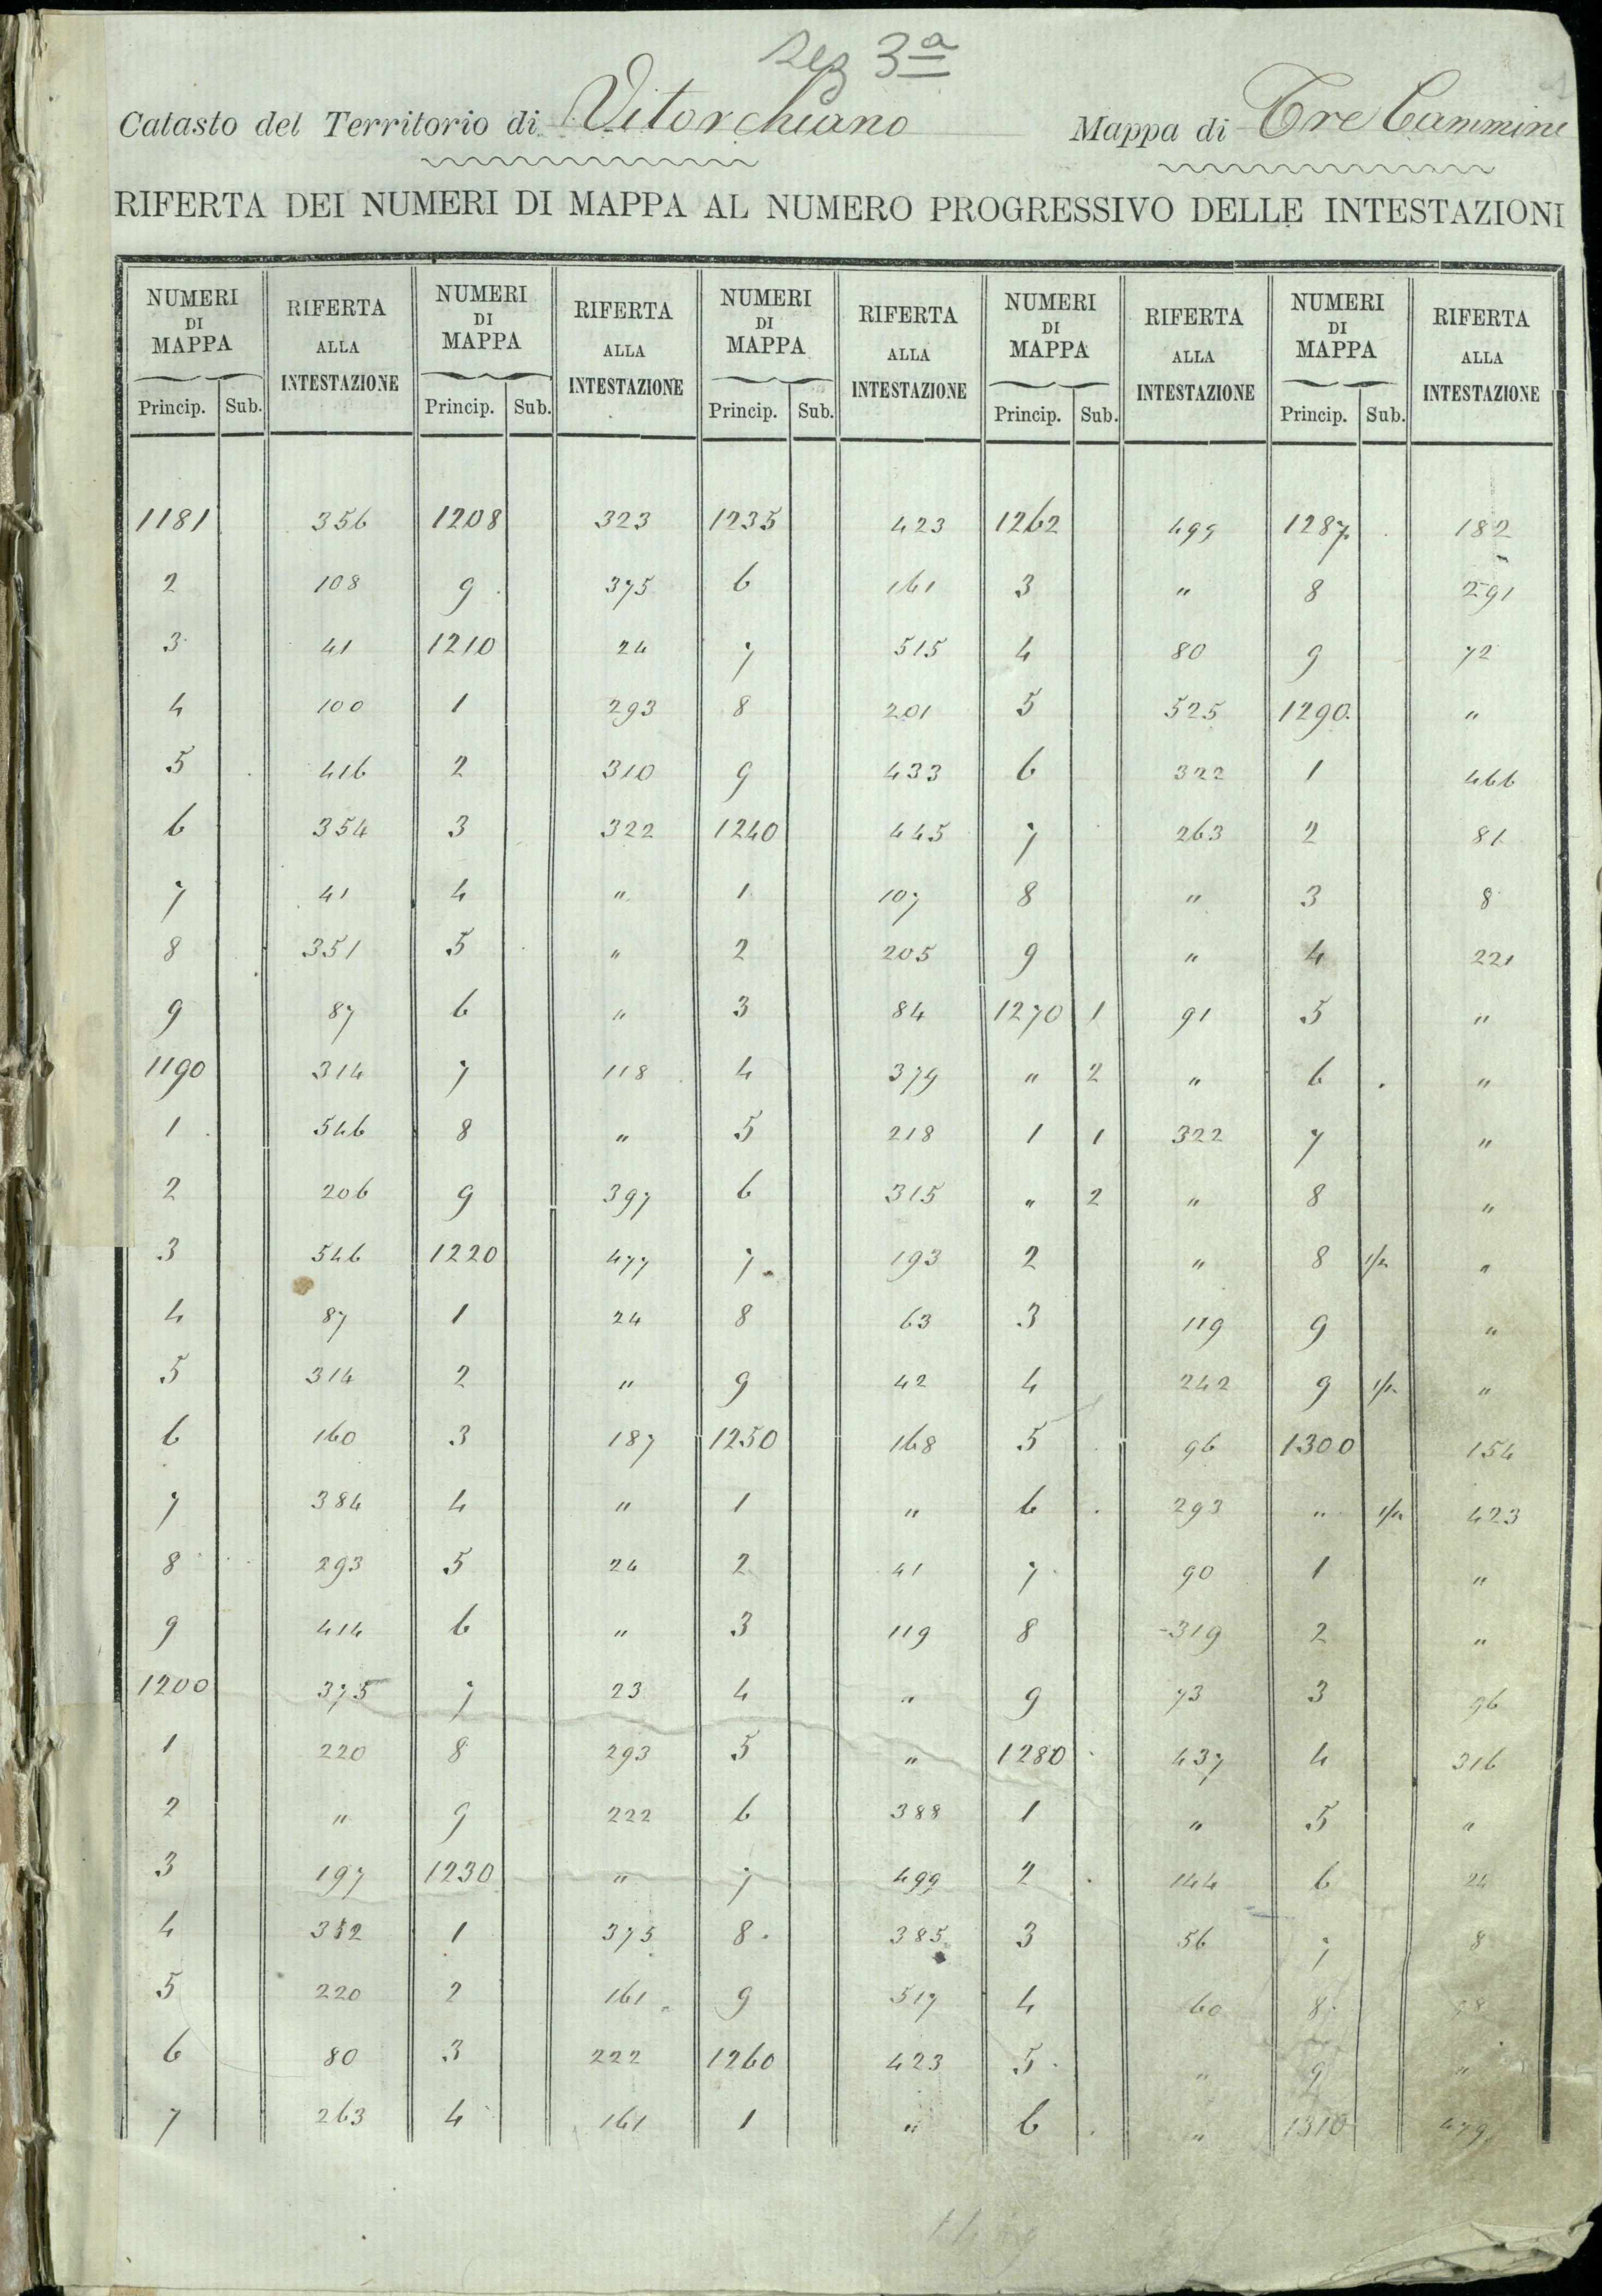 Sez 3ª
Catasto del Territorio di Vitorchiano Mappa di Tre Cammini
RIFERTA DEI NUMERI DI MAPPA AL NUMERO PROGRESSIVO DELLE INTESTAZIONI
NUMERI DI MAPPA RIFERTA ALLA INTESTAZIONE NUMERI DI MAPPA RIFERTA ALLA INTESTAZIONE NUMERI DI MAPPA RIFERTA ALLA INTESTAZIONE NUMERI DI MAPPA RIFERTA ALLA INTESTAZIONE NUMERI DI MAPPA RIFERTA ALLA INTESTAZIONE
Princip. Sub. Princip. Sub. Princip. Sub. Princip. Sub. Princip. Sub.
1181 356 1208 323 1235 423 1262 499 1287 182
2 108 9 375 6 161 3 " 8 291
3 41 1210 24 7 515 4 80 9 72
4 100 1 293 8 201 5 525 1290 "
5 416 2 310 9 433 6 322 1 466
6 354 3 322 1240 445 7 263 2 81
7 41 4 " 1 107 8 " 3 8
8 351 5 " 2 205 9 " 4 221
9 87 6 " 3 84 1270 1 91 5 "
1190 314 7 118 4 379 " 2 " 6 "
1 546 8 " 5 218 1 1 322 7 "
2 206 9 397 6 315 " 2 " 8 "
3 546 1220 477 7 193 2 " 8 1/2 "
4 87 1 24 8 63 3 119 9 "
5 314 2 " 9 42 4 242 9 1/2 "
6 160 3 187 1250 168 5 96 1300 154
7 384 4 " 1 " 6 293 " 1/2 423
8 293 5 24 2 41 7 90 1 "
9 414 6 " 3 119 8 319 2 "
1200 375 7 23 4 " 9 73 3 96
1 220 8 293 5 " 1280 437 4 316
2 " 9 222 6 388 1 " 5 "
3 197 1230 " 7 499 2 144 6 24
4 312 1 375 8 385 3 56 7 8
5 220 2 161 9 517 4 60 8
6 80 3 222 1260 423 5 " 9 "
7 263 4 161 1 " 6 " 1310 479